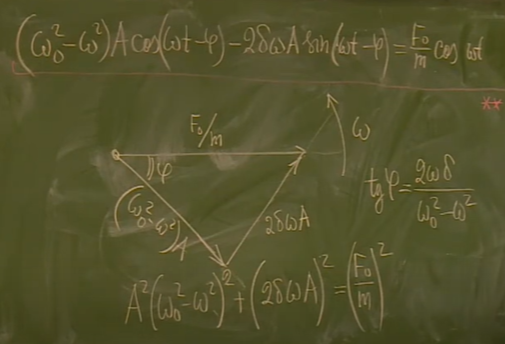 (ω₀²-ω²)A cos(ωt-φ)-2δωA sin(ωt-φ)=F₀/m cos ωt
**
F₀/m
ω
φ
(ω₀²-ω²)A
2δωA
tgφ=2ωδ/ω₀²-ω²
A²(ω₀²-ω²)²+(2δωA)²=(F₀/m)²